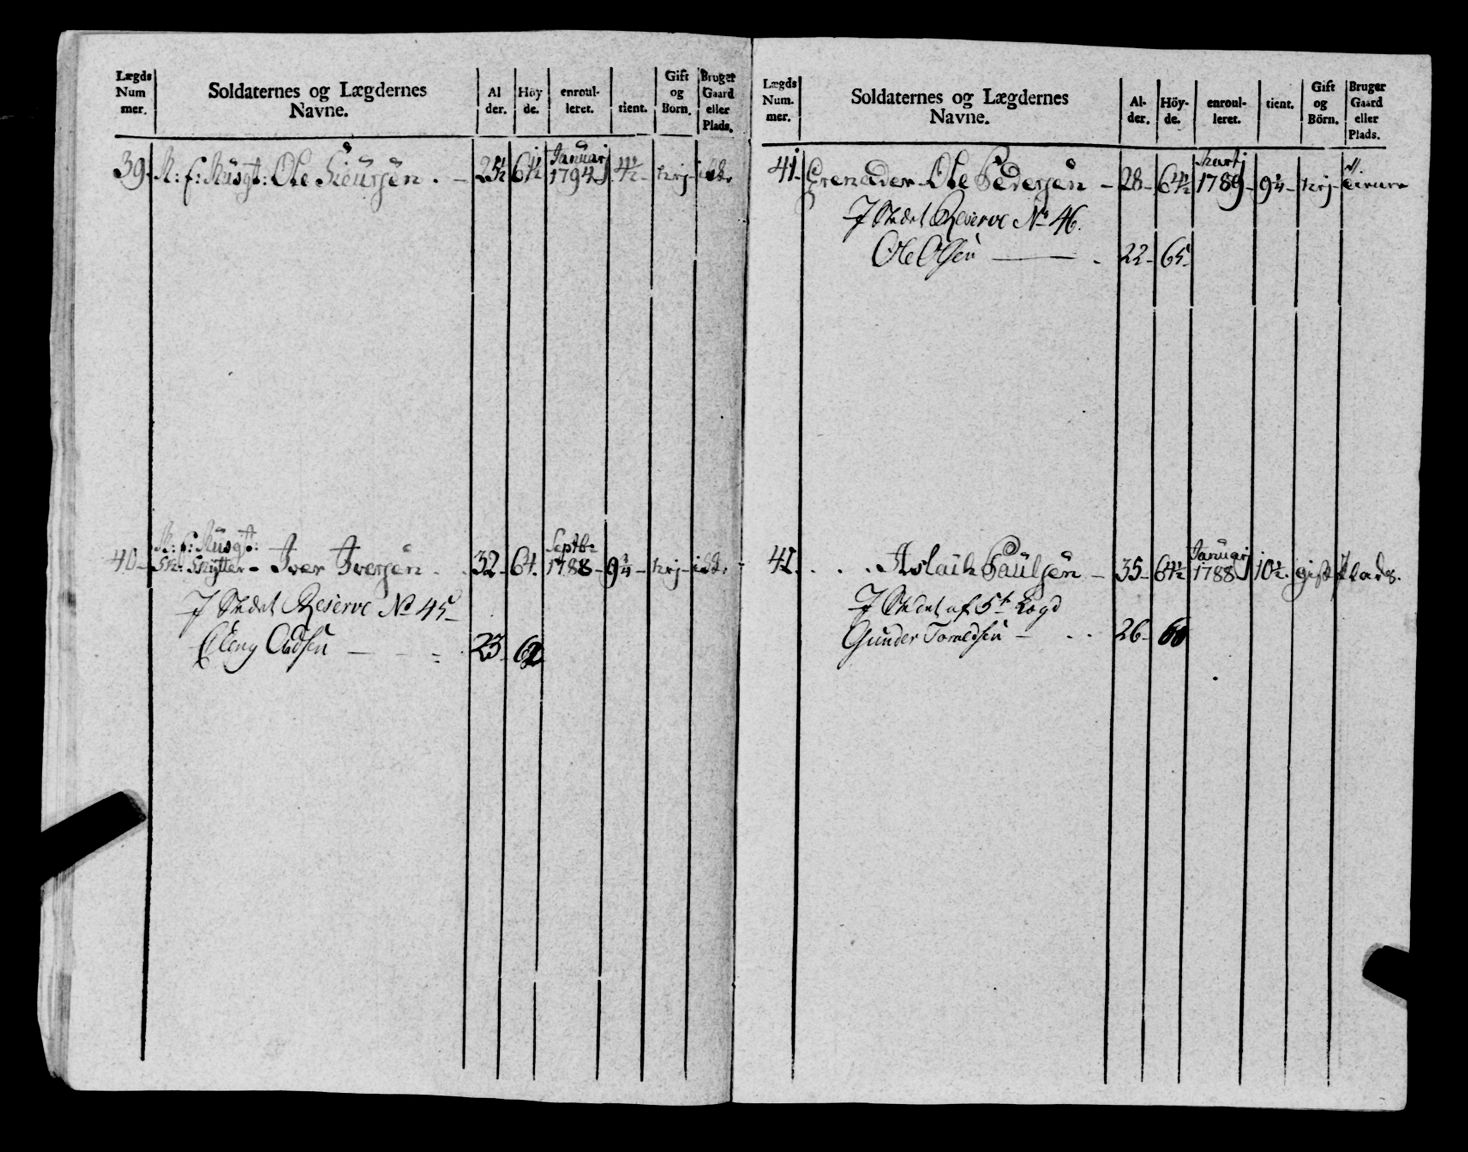 Lægds Num mer.
Soldaternes og Lægdernes Navne.
Al der.
Höy de.
enroul- leret.
tient.
Gift og Born.
Bruger Gaard eller Plads.
39. R: f: Rusgt: Ole - 64½ Januarj 1794 4½ - - ikke
40 - R: f: Rusgt:
Skytter - Iver Iversen 32 - 64. Septbr 1788 - 9¼ - - ikke
I Stedet Reserve No 45 -
Oudsen - 23 -
Lægds Num. mer.
Soldaternes og Lægdernes Navne.
Al- der.
Höy- de.
enroul- leret.
tient.
Gift og Börn.
Bruger Gaard eller Plads.
41 - Grenadeer Ole Pedersen - 28 - 64½ Martj 1789 - 9¼ -
I Stedet Reserve No 46.
Ole Olsen - 22 - 65 -
42. Aslak Paulsen - 35 - 64½ Januarj 1788 10½. gift Plads.
I Stedet af 5t Lægd
Gunder Taraldsen - 26 - 60